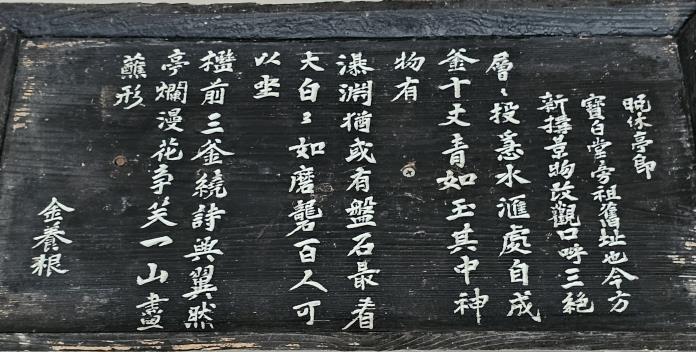 晩休亭即
寶白堂旁祖舊址也今方
新搆景物改觀口呼三絶
層〻投急水滙處自成
釜十丈青如玉其中神
物有
瀑淵猶或有盤石最看
大白〻如磨礱百人可
以坐
檻前三釜繞詩與翼然
亭爛漫花爭笑一山盡
蘸形
金養根